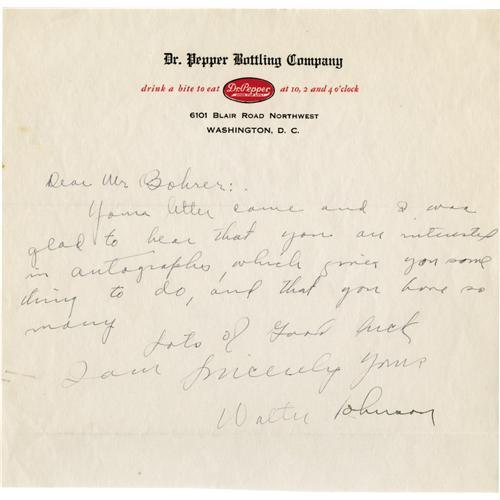 Dr. Pepper Bottling Company
drink a bite to eat Dr.Pepper at 10, 2 and 4 o'clock
GOOD FOR LIFE!
6101 Blair Road Northwest
Washington, D. C.
Dear Mr Bohrer:.
Your letter came and I was
glad to hear that you are interested
in autographs, which gives you some
thing to do, and that you have so
many
Lots of Good luck
I am Sincerely Yours
Walter Johnson